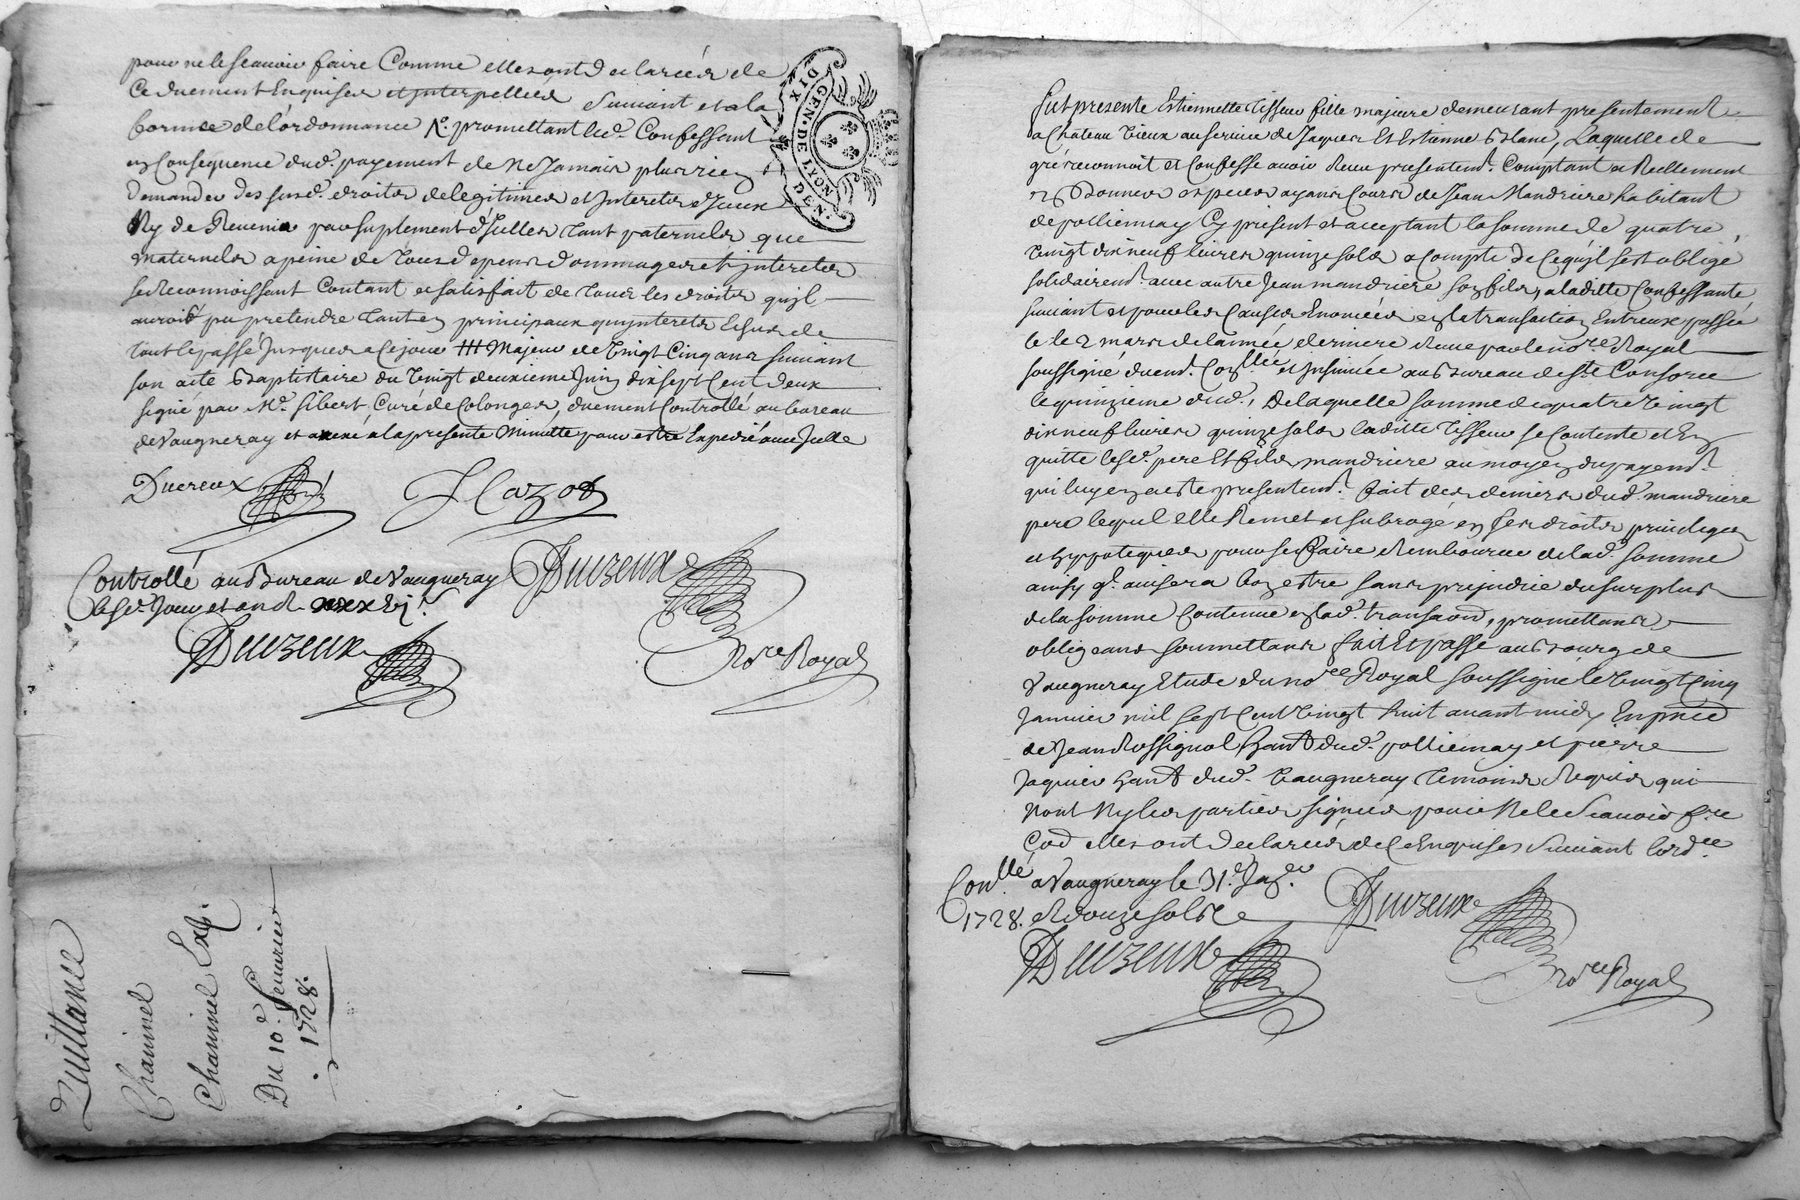 pour ne le scauoir faire Comme elles ont declarées de
Ce duement Enquises et interpellées suiuant et a la
forme de l'ordonnance Ro. promettant led. Confessant
en Consequence dud. payement de ne Jamais plus rien
demander des susd. droits de legitimes et Interets d'Iceux
Ny de Reuenir par suplement d'Icelles tant paternels que
maternels a peine de tous depens dommages et interets
se Reconnoissant Contant et satisfait de tous les droits qu'jl
auroit pu pretendre tant en principaux qu'jnterets Echus de
tout le passé Jusques a Ce jour Majeur de Vingt Cinq ans suiuant
son acte Baptistaire du Vingt deuxieme Juin dix sept Cent deux
signé par Mr. Gibert Curé de Colonges, duement Controllé au bureau
de Vaugneray et anexé a la presente Minutte pour estre Expedié auec Icelle
Ducreux Hazod
Controllé au Bureau de Vaugneray
led. Jour et an R
Duuzeux Nore Royal
Duuzeux
DIX DEN. GEN. DE LYON
Quittance
Chainnel
Chainnel Exp.
Du 10e. feurier
1728.
fut presente Estiennette Tisseur fille majeure demeurant presentement
a Chateau Vieux au seruice de Jaques Et Estienne Blanc, Laquelle de
gré reconnoit et Confesse auoir Receu presentemt. Comptant et Reellement
en Bonnes especes ayant Cours de Jean Mandriere habitant
de pollionnay Cy present et acceptant la somme de quatre
Vingt dix neuf liures quinze sols a Compte de Ce qu'jl s'est obligé
solidairemt. auec autre Jean mandriere son fils, a laditte Confessante
suiuant et pour les Causes Enoncées en la transaction Entreux passée
le 2 mars de lannée derniere Receue par le nore Royal
soussigné duemt. Conllée et jnsinuée au Bureau de Ste Consorce
le quinzieme dud., De laquelle somme de quatre Vingt
dix neuf liures quinze sols laditte Tisseur se Contente et En
quitte lesd. pere Et fils mandriere au moyen du payemt.
qui luy en a esté presentemt. fait des deniers dud. mandriere
pere lequel elle Remet et subroge en ses droits priuileges
et hypoteques pour se faire Rembourcer de lad. somme
ainsy ql. auisera bon estre sans prejudice du surplus
de la somme Contenue en lad. transaon, promettans
obligeans soumettans fait Et passé au Bourg de
Vaugneray Etude du nore Royal soussigné le Vingt Cinq
Januier mil sept Cent Vingt huit auant midy En pnce
de Jean Rossignol habt dud. pollionnay et pierre
Jaquier habt dud. Vaugneray temoins Requis qui
n'ont Ny les parties signées pour Ne le scauoir fre
Com elles ont declarées de Ce Enquises suiuant lordce
Conllé a Vaugneray le 31e. Jaer.
1728. R douze sols
Duuzeux
Duuzeux Nore Royal